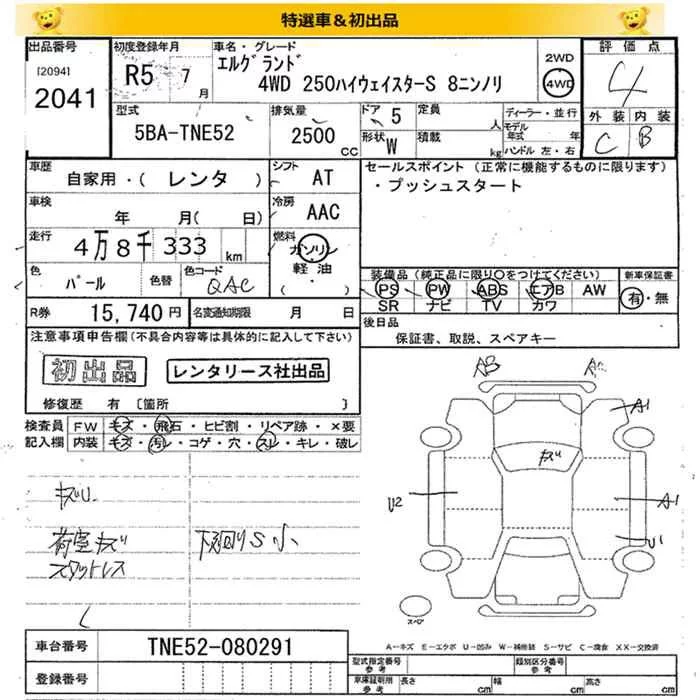 特選車＆初出品
出品番号 初度登録年月 車名・グレード 2WD 評価点
[2094] R5 7月 エルグランド 4WD 4
2041 4WD 250ハイウェイスターS 8ニンノリ
型式 排気量 ドア 5 定員 人 ディーラー・並行 外装 内装
5BA-TNE52 2500 CC 形状 W 積載 kg モデル年式 年 C B
ハンドル 左・右
車歴 シフト セールスポイント (正常に機能するものに限ります)
自家用・( レンタ ) AT ・プッシュスタート
車検 年 月( 日) 冷房 AAC
走行 4万8千333 km 燃料 ガソリン
色 パール 色替 色コード QAC 軽油 ( ・ )
装備品 (純正品に限り〇をつけてください) 新車保証書
PS PW ABS エアB AW 有・無
SR ナビ TV カワ
R券 15,740円 名変通知期限 月 日 後日品
保証書、取説、スペアキー
注意事項申告欄(不具合内容等は具体的に記入して下さい)
初出品 レンタリース社出品
修復歴 有 〔箇所 〕
検査員 FW キズ・飛石・ヒビ割・リペア跡・×要
記入欄 内装 キズ・汚レ・コゲ・穴・スレ・キレ・破レ
A1
キズ
キズU U2 A1
荷室キズ 下廻りS小 U1
スタットレス
スペア
A－キズ E－エクボ U－凹み W－補修跡 S－サビ C－腐食 XX－交換済
車台番号 TNE52-080291
登録番号 型式指定番号 参考 類別区分番号 参考
車庫証明用 参考 長さ cm 幅 cm 高さ cm